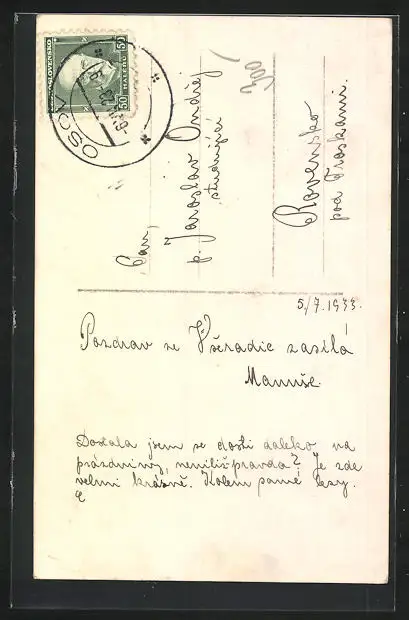 ČESKOSLOVENSKO
50 HALÉŘŮ 50
OSOV
300
Pan,
p. Jaroslav Ondřej
studující
Rovensko
pod Troskami.
5/7.1933.
Pozdrav ze Všeradic zasílá
Manuše.
Dostala jsem se dosti daleko na
prázdniny, pravda? Je zde
velmi krásně. Kolem samé lesy.